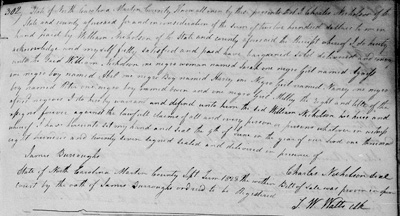 302 State of North Carolina Martin County Know all men by these presents that I Charles Nicholson of the
State and county aforesaid for and in consideration of the sum of twelve hundred dollars to me in
hand paid by William Nicholson of the State and county aforesaid the receipt whereof I do hereby
acknowledge and myself fully satisfied and paid have bargained sold delivered
unto the said William Nicholson one negro woman named Sarah one negro Girl named
one negro boy named one negro Boy named Henry one Negro Girl named Nancy one negro
boy named one negro boy named and one negro Girl the right and title of the
negros I do hereby warrant and defend unto him the said William Nicholson his heirs and
assigns forever against the lawfull claims of all and every person or persons whatever in witness
whereof I have hereunto set my hand and seal the 9th of in the year of our Lord one thousand
eight hundred and twenty signed sealed and delivered in presence of
James Burroughs Charles Nicholson seal
State of North Carolina Martin County Sept Term 1828 the within Bill of Sale was proven in open
court by the oath of James Burroughs ordered to be Registered
J. W. Watts clk